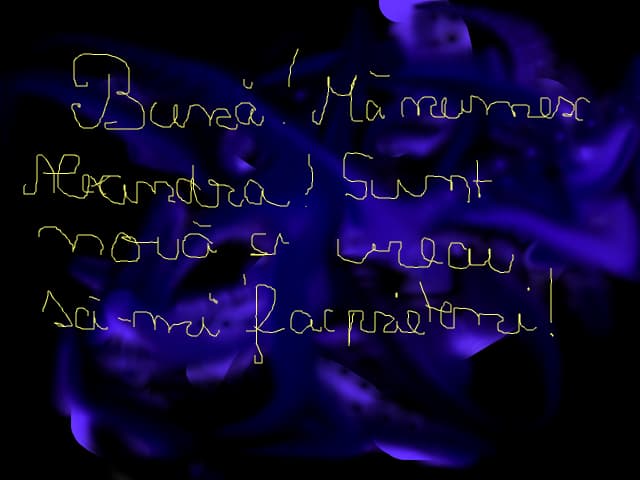 Bună! Mă numesc
Alexandra! Sunt
nouă si vreau
să-mi fac prieteni!